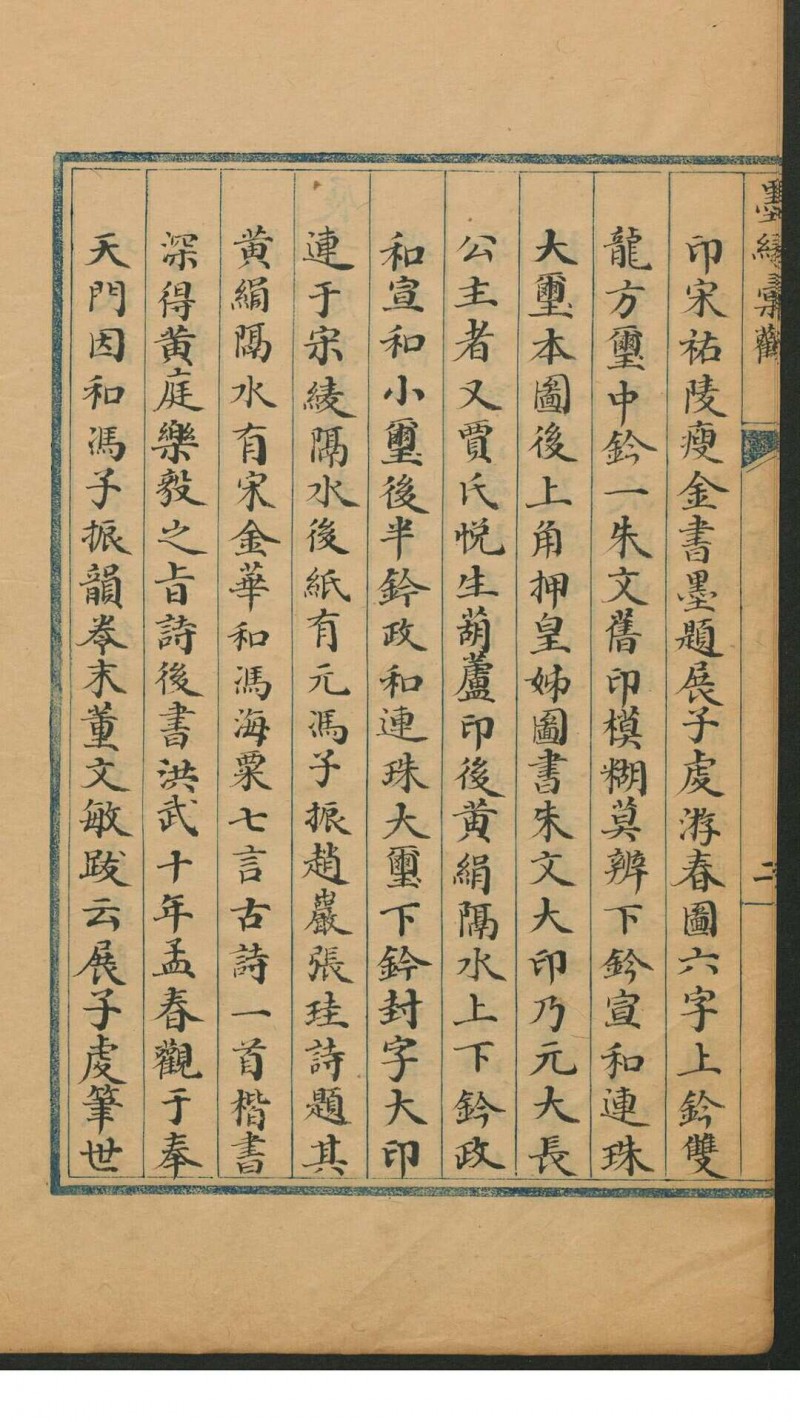 墨緣彙觀
二
印宋祐陵瘦金書墨題展子虔游春圖六字上鈐雙
龍方璽中鈐一朱文舊印模糊莫辨下鈐宣和連珠
大璽本圖後上角押皇姊圖書朱文大印乃元大長
公主者又賈氏悅生葫蘆印後黃絹隔水上下鈐政
和宣和小璽後半鈐政和連珠大璽下鈐封字大印
連于宋綾隔水後紙有元馮子振趙巖張珪詩題其
黃絹隔水有宋金華和馮海粟七言古詩一首楷書
深得黃庭樂毅之旨詩後書洪武十年孟春觀于奉
天門因和馮子振韻卷末董文敏跋云展子虔筆世